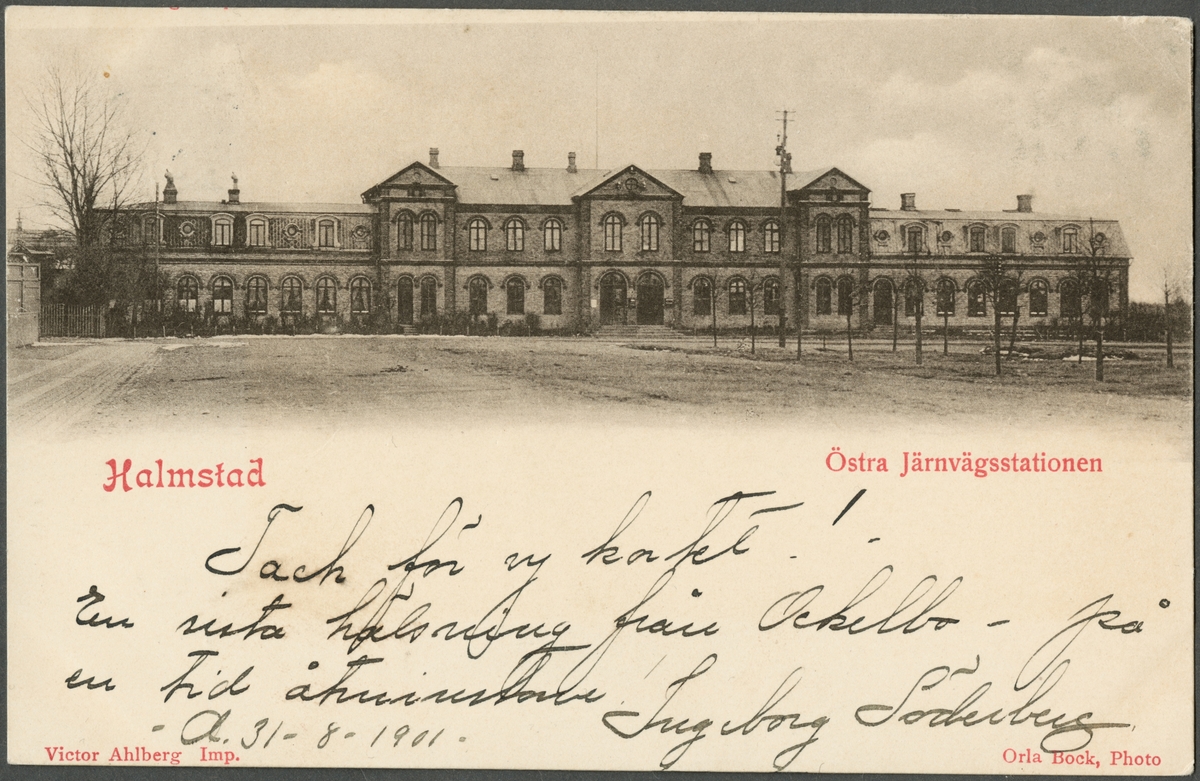 Halmstad
Östra Järnvägsstationen
Tack för vy kortet!
En sista hälsning från Ockelbo - på
en tid åtminstone!
Ingeborg Söderberg
d. 31-8-1901-
Victor Ahlberg Imp.
Orla Bock, Photo